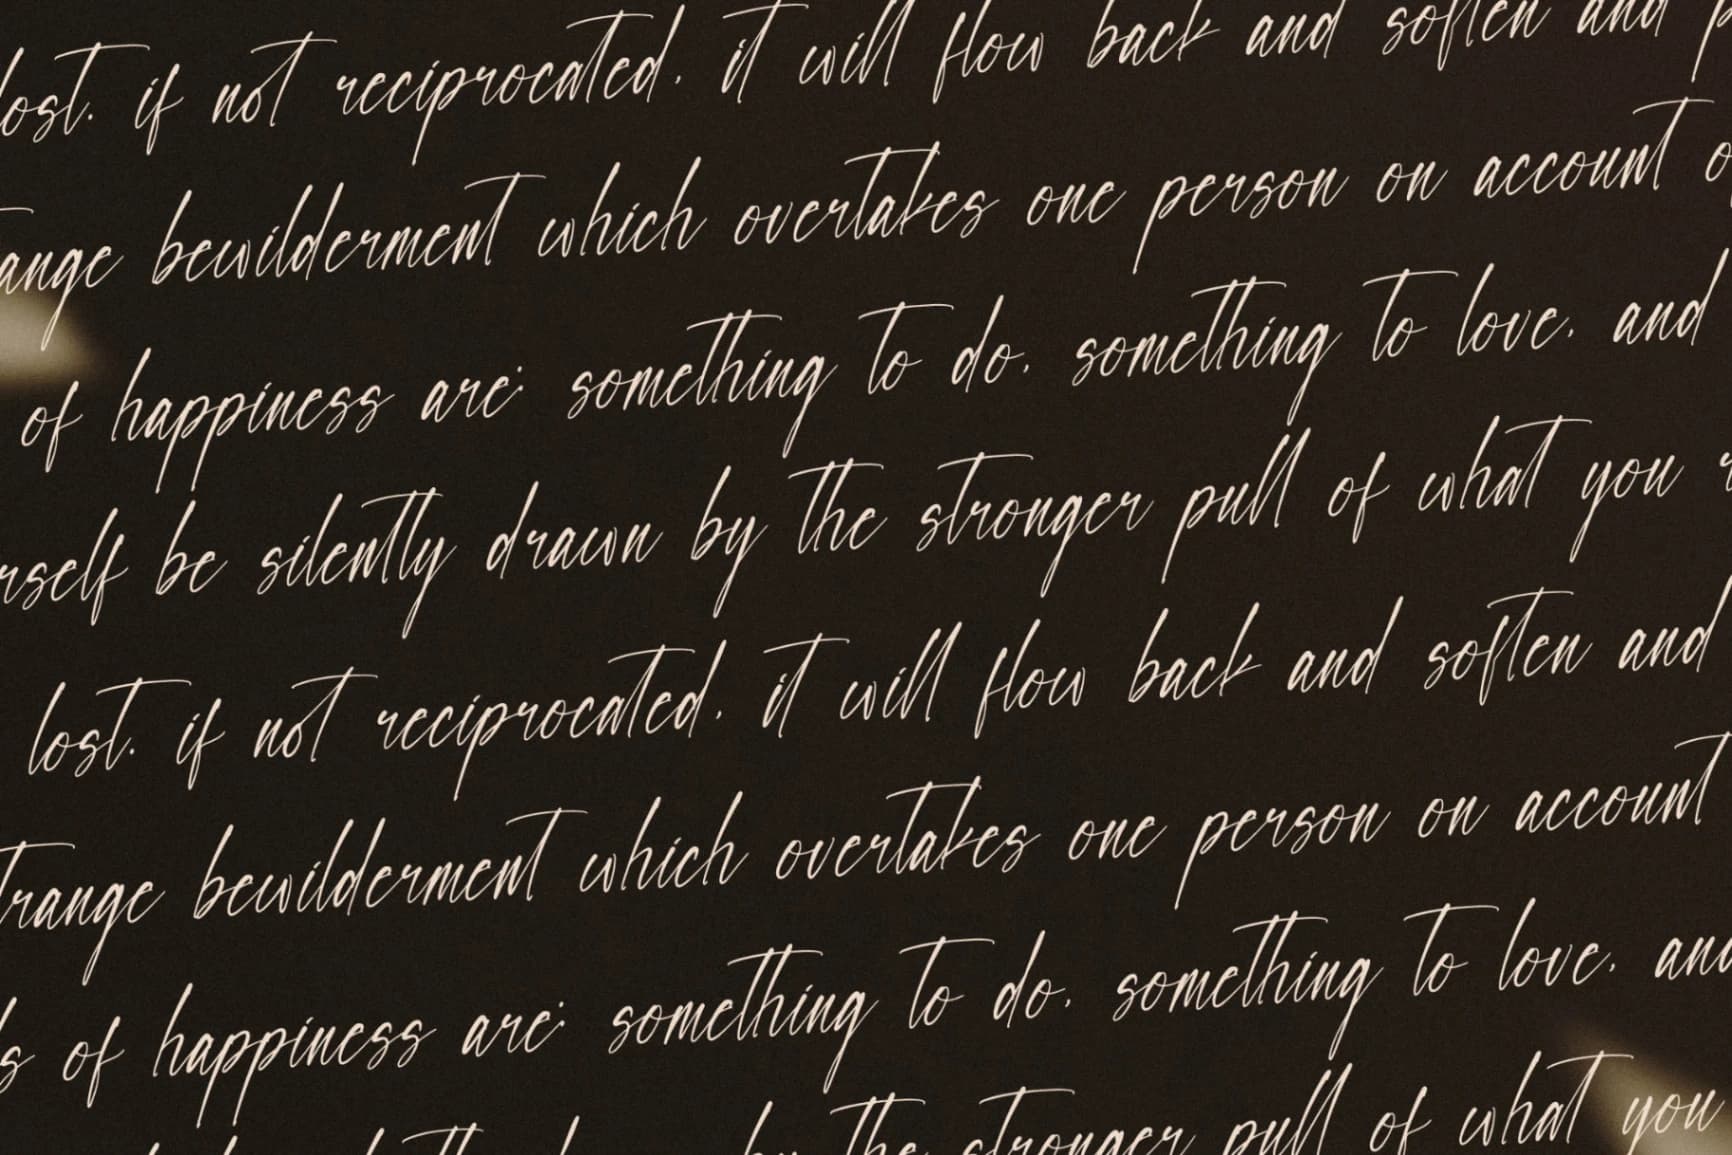 lost. if not reciprocated, it will flow back and soften and p
ange bewilderment which overtakes one person on account o
of happiness are: something to do, something to love, and
rself be silently drawn by the stronger pull of what you r
lost. if not reciprocated, it will flow back and soften and
trange bewilderment which overtakes one person on account
s of happiness are: something to do, something to love, and
by the stronger pull of what you